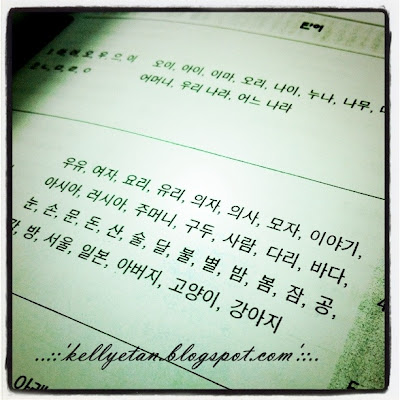 단어
오, 우, 으, 이
오이, 아이, 이마, 오리, 나이, 누나, 나무,
ㄴ, ㅁ, ㄹ, ㅇ
어머니, 우리 나라, 어느 나라
우유, 여자, 요리, 유리, 의자, 의사, 모자, 이야기,
아시아, 러시아, 주머니, 구두, 사람, 다리, 바다,
눈, 손, 문, 돈, 산, 술, 달, 불, 별, 밤, 봄, 잠, 공,
방, 서울, 일본, 아버지, 고양이, 강아지
...::'kellyetan.blogspot.com'::..